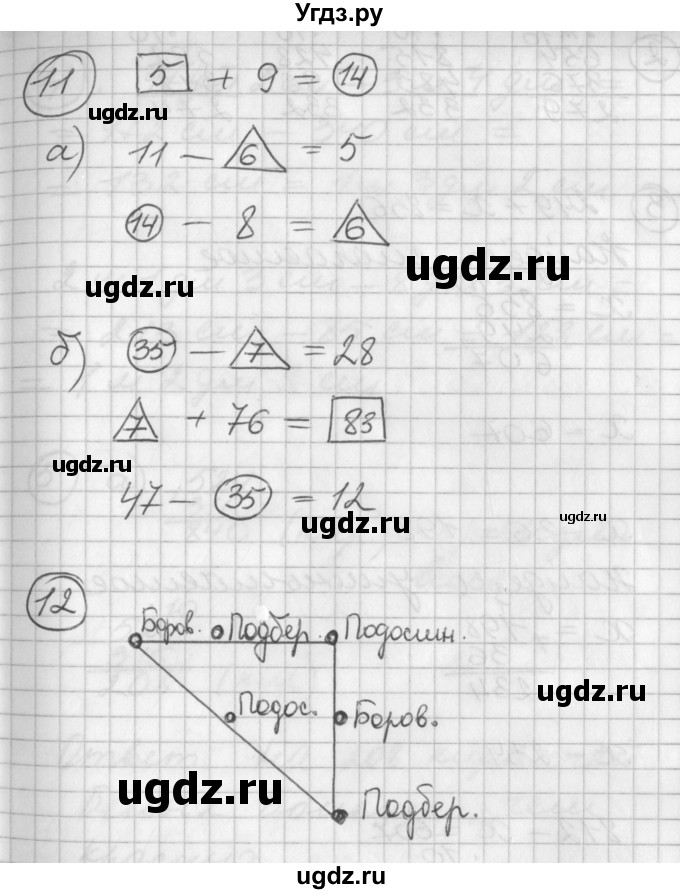 Угдз.ру
11 5 + 9 = 14
ugdz.ru
а) 11 - 6 = 5
14 - 8 = 6
ugdz.ru
ugdz.ru
б) 35 - 7 = 28
7 + 76 = 83
ugdz.ru
47 - 35 = 12
ugdz.ru
ugdz.ru
12
Боров. Подбер. Подосин.
Подос. Боров.
ugdz.ru
Подбер.
ugdz.ru